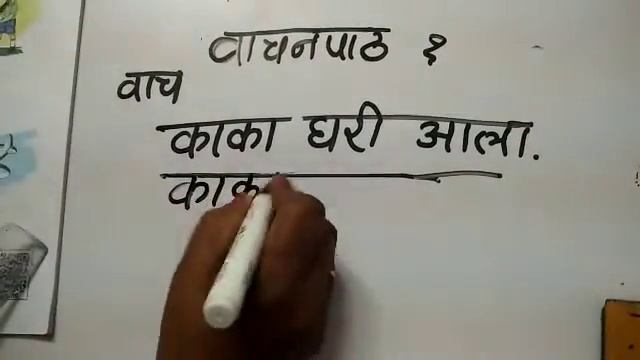 वाचनपाठ १
वाच
काका घरी आला.
काक